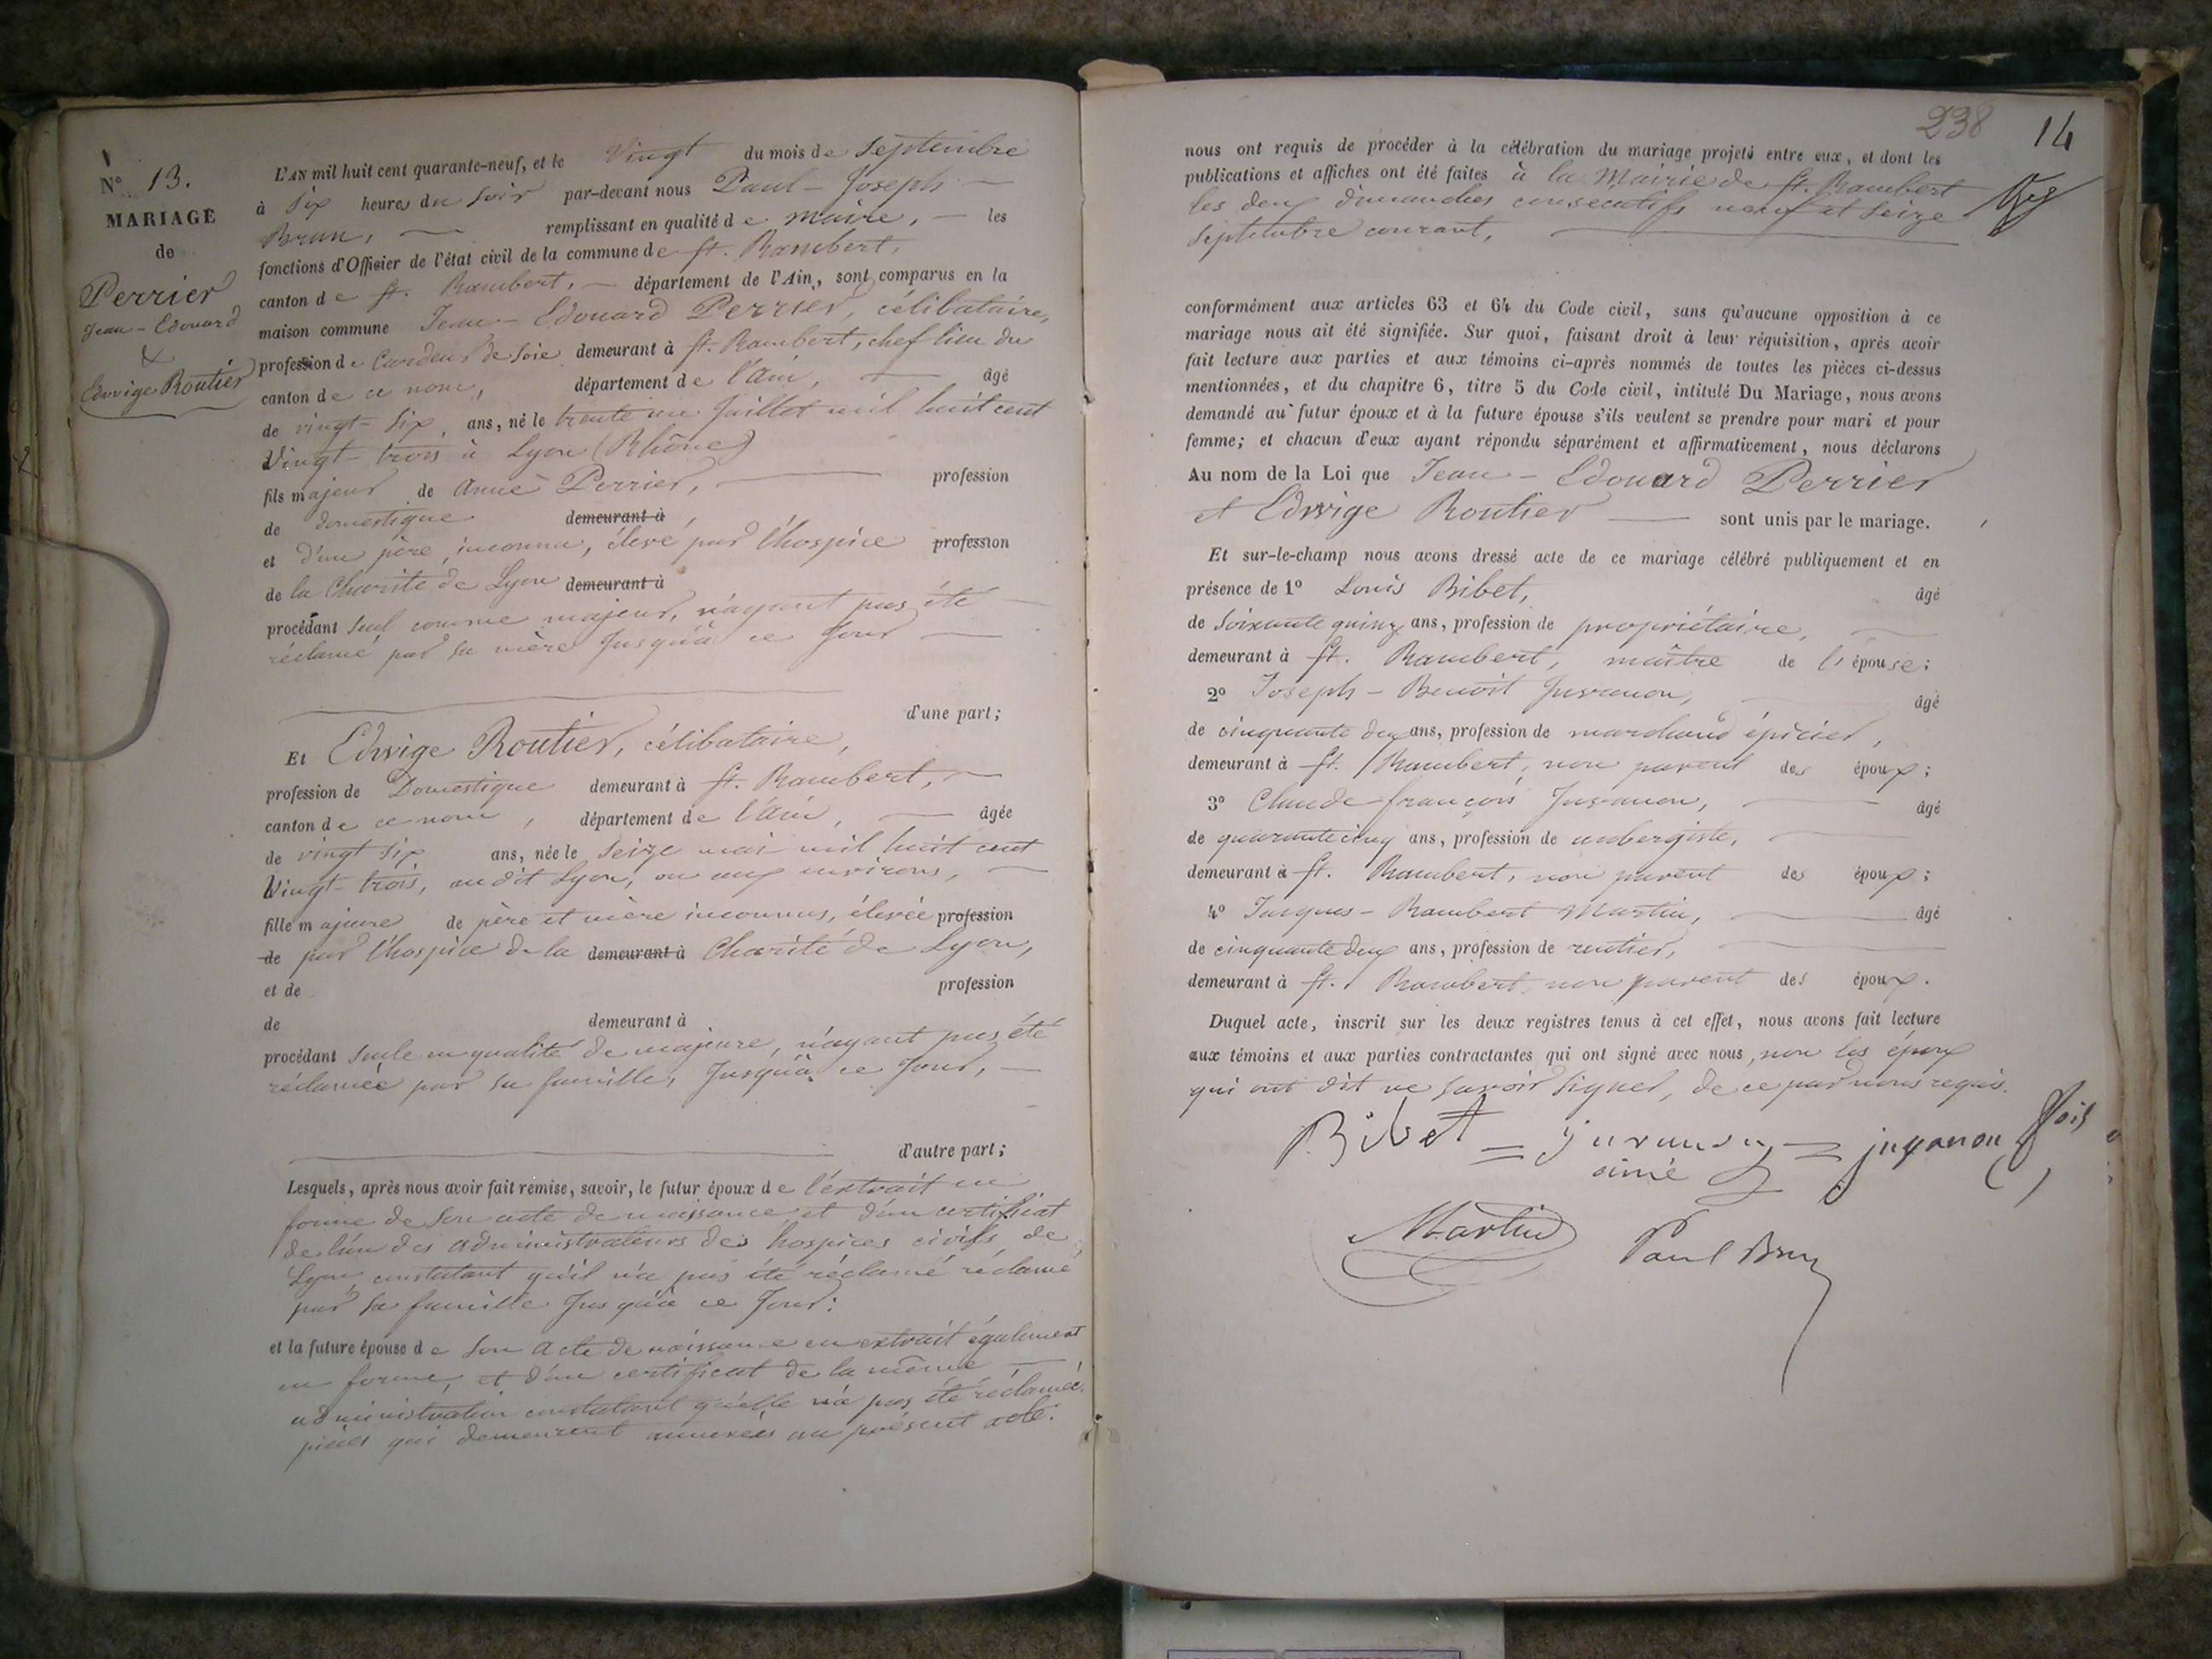 N° 13.
MARIAGE
de
Perrier
Jean-Edouard
&
Edwige Routier
L'AN mil huit cent quarante-neuf, et le Vingt du mois de Septembre
à Six heures du Soir par-devant nous Paul-Joseph
Brun, remplissant en qualité de maire, les
fonctions d'Officier de l'état civil de la commune de St. Rambert,
canton de St. Rambert, département de l'Ain, sont comparus en la
maison commune Jean-Edouard Perrier, célibataire,
profession de Cardeur de Soie demeurant à St. Rambert, chef lieu du
canton de ce nom, département de l'Ain, âgé
de vingt-Six ans, né le trente un Juillet mil huit cent
Vingt-trois à Lyon (Rhône)
fils majeur de Anne Perrier, profession
de domestique demeurant à
et d'un père inconnu, élevé par l'hospice profession
de la Charité de Lyon demeurant à
procédant Seul comme majeur, n'ayant pas été
réclamé par sa mère Jusqu'à ce Jour
d'une part;
Et Edwige Routier, célibataire,
profession de Domestique demeurant à St. Rambert,
canton de ce nom, département de l'Ain, âgée
de vingt Six ans, née le Seize mai mil huit cent
Vingt-trois, audit Lyon, ou aux environs,
fille majeure de père et mère inconnus, élevée profession
de par l'hospice de la demeurant à Charité de Lyon,
et de profession
de demeurant à
procédant Seule en qualité de majeure, n'ayant pas été
réclamée par sa famille, Jusqu'à ce Jour,
d'autre part;
Lesquels, après nous avoir fait remise, savoir, le futur époux de l'extrait en
forme de Son acte de naissance et d'un certificat
de l'un des administrateurs des hospices civils de
Lyon constatant qu'il n'a pas été réclamé réclamé
par sa famille Jusqu'à ce Jour:
et la future épouse de Son acte de naissance en extrait également
en forme, et d'un certificat de la même
administration constatant qu'elle n'a pas été réclamée,
pièces qui demeurent annexées au présent acte.
238
14
nous ont requis de procéder à la célébration du mariage projeté entre eux, et dont les
publications et affiches ont été faites à la Mairie de St. Rambert
les deux dimanches consécutifs neuf et Seize
Septembre courant,
conformément aux articles 63 et 64 du Code civil, sans qu'aucune opposition à ce
mariage nous ait été signifiée. Sur quoi, faisant droit à leur réquisition, après avoir
fait lecture aux parties et aux témoins ci-après nommés de toutes les pièces ci-dessus
mentionnées, et du chapitre 6, titre 5 du Code civil, intitulé Du Mariage, nous avons
demandé au futur époux et à la future épouse s'ils veulent se prendre pour mari et pour
femme; et chacun d'eux ayant répondu séparément et affirmativement, nous déclarons
Au nom de la Loi que Jean-Edouard Perrier
et Edwige Routier sont unis par le mariage.
Et sur-le-champ nous avons dressé acte de ce mariage célébré publiquement et en
présence de 1° Louis Bibet, âgé
de Soixante quinze ans, profession de propriétaire,
demeurant à St. Rambert, maître de l'épouse;
2° Joseph-Benoit Juvanon, âgé
de cinquante deux ans, profession de marchand épicier,
demeurant à St. Rambert, non parent des époux;
3° Claude-françois Juvanon, âgé
de quarante cinq ans, profession de aubergiste,
demeurant à St. Rambert, non parent des époux;
4° Jacques-Rambert Martin, âgé
de cinquante deux ans, profession de rentier,
demeurant à St. Rambert non parent des époux.
Duquel acte, inscrit sur les deux registres tenus à cet effet, nous avons fait lecture
aux témoins et aux parties contractantes qui ont signé avec nous, non les époux
qui ont dit ne savoir Signer, de ce par nous requis.
Bibet = juvanon = juvanon fois
ainé
Martin Paul Brun